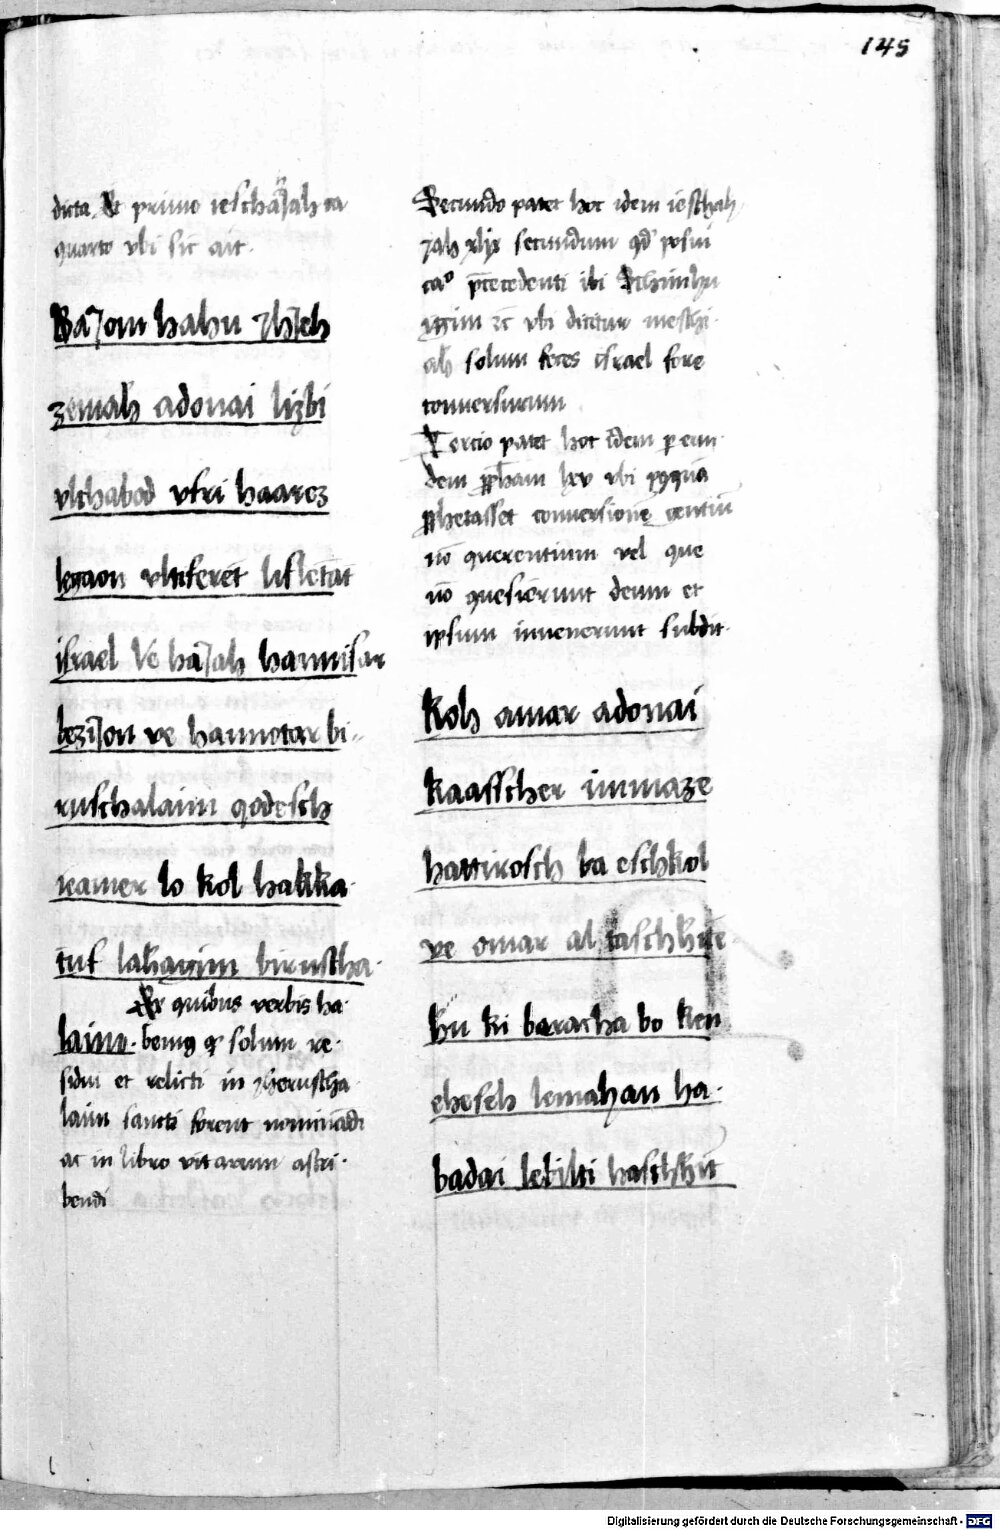 145
dicta. Et primo ieschaJah ca
quarto vbi sic ait.
BaJom hahu JhJeh
zemah adonai lizbi
vlchabod vfri haarez
legaon vltiferet lifletat
israel Ve haJah hannisar
beziJon ve hannotar bi
ruschalaim qodesch
ieamer lo kol hakka
tuf lahayim biruscha
Ex quibus verbis ha
laim. bemus quod solum re
sidui et relicti in Jheruscha
laim sancti forent nominandi
ac in libro vitarum astri
bendi
Secundo patet hoc idem ieschah
Jah xlix secundum qd posui
cao precedenti ibi Schimhu
ijim et vbi dicitur meschi
ah solum feces israel fore
conuersurum
Tercio patet hoc idem per eun
dem prophetam lxv vbi postquam
prophetasset conuersionem gentium
non querentium vel que
non quesierunt deum et
ipsum inuenerunt subdit
Koh amar adonai
kaasscher immaze
hattirosch ba eschkol
ve omar al taschhite
hu ki baracha bo ken
eheseh lemahan ha
badai lebilti haschhit
Digitalisierung gefördert durch die Deutsche Forschungsgemeinschaft - DFG